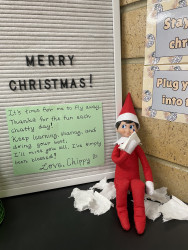 MERRY
CHRISTMAS!
It's time for me to fly away.
Thanks for the fun each
Chatty day!
Keep learning, sharing, and
doing your best.
I'll miss you all, I've
been blessed!
Love, Chippy
Stay
Plug
into